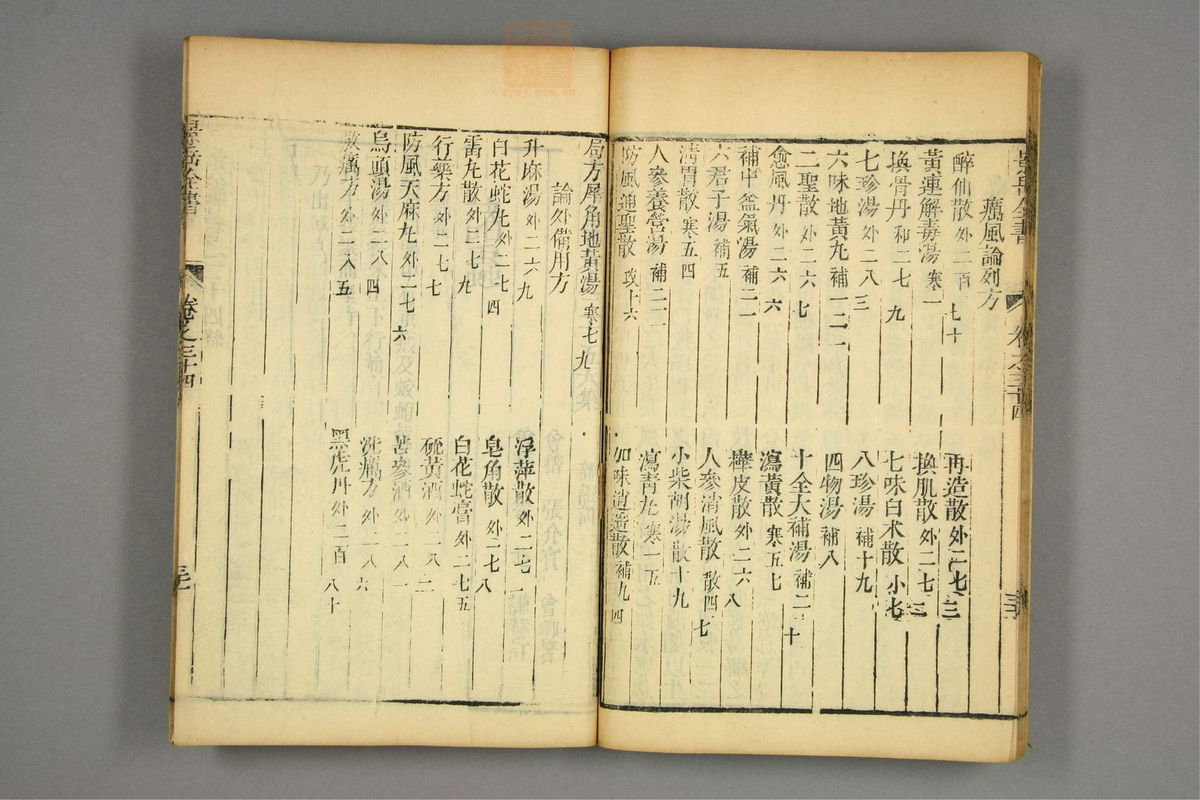 景岳全書 卷之三十四
癘風論列方
醉仙散 外二百七十
再造散 外二七三
黃連解毒湯 寒一
換肌散 外二七二
換骨丹 和二七九
七味白术散 小七
七珍湯 外二八三
八珍湯 補十九
六味地黃九 補一二一
四物湯 補八
二聖散 外二六七
十全大補湯 補二十
愈風丹 外二六六
瀉黃散 寒五七
補中益氣湯 補二一
樺皮散 外二六八
六君子湯 補五
人參消風散 散四七
清胃散 寒五四
小柴胡湯 散十九
人參養營湯 補二二
瀉青九 寒一五
防風通聖散 攻十六
加味逍遥散 補九四
局方犀角地黃湯 寒七九
論外備用方
升麻湯 外二六九
浮萍散 外二七一
白花蛇九 外二七四
皂角散 外二七八
雷九散 外二七九
白花蛇膏 外二七五
行藥方 外二七七
硫黃酒 外二八二
防風天麻九 外二七六
苦參酒 外二八一
烏頭湯 外二八四
洗癘方 外二八六
敷癘方 外二八五
黑虎丹 外二百八十
景岳全書 卷之三十四